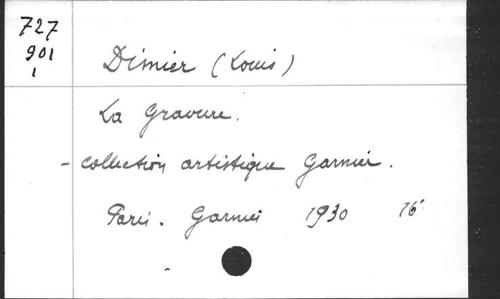 727
901
1
Dimier (Louis)
La Gravure.
- Collection artistique Garnier.
Paris. Garnier 1930 16°
-